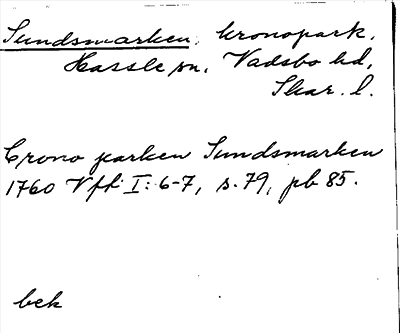 Sundsmarken, kronopark,
Hassle sn, Vadsbo hd,
Skar. l.
Crono parken Sundsmarken
1760 Vff I: 6-7, s. 79, pb 85.
bek